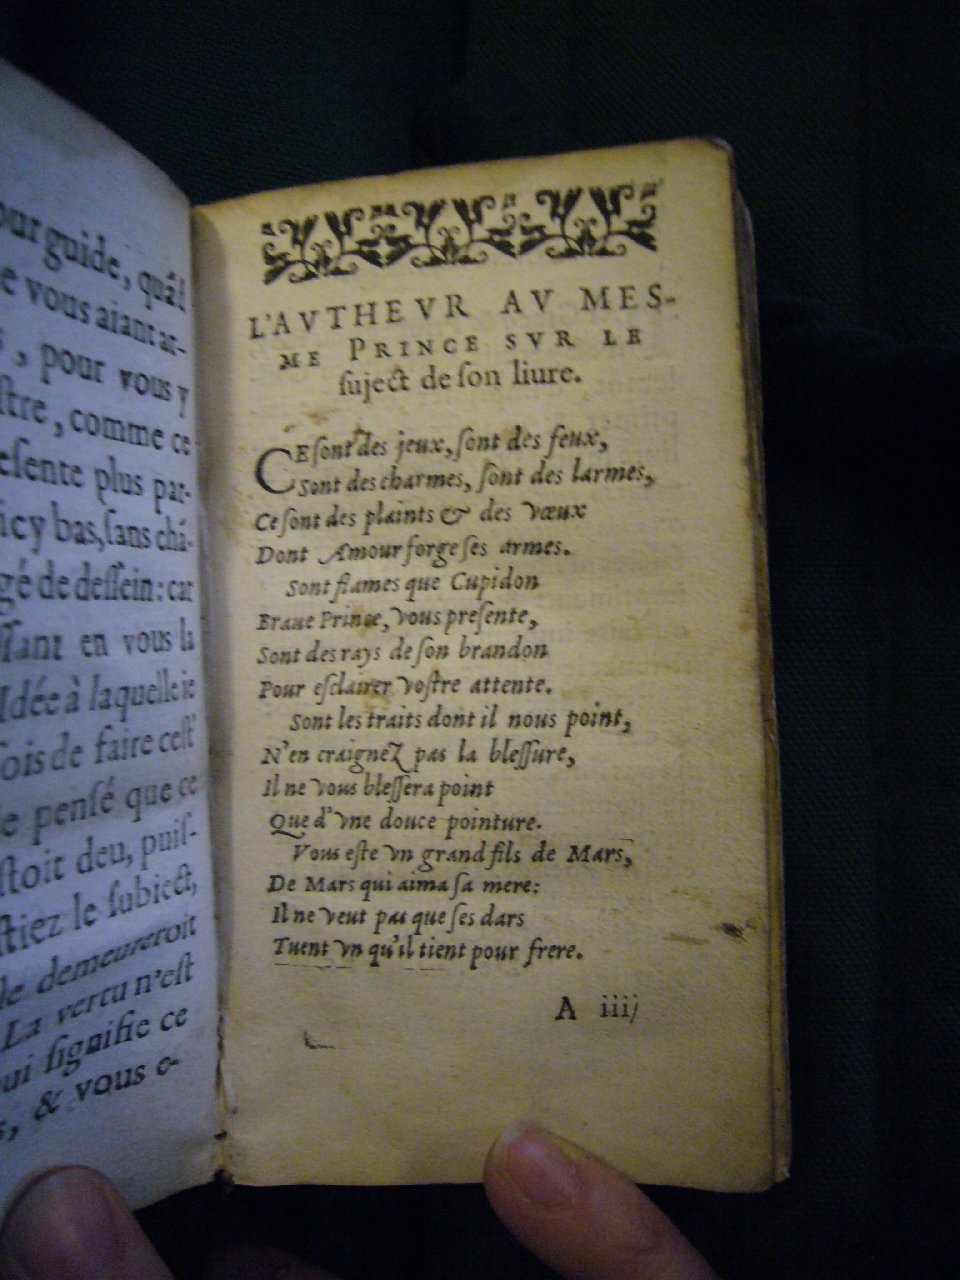 our guide, quãd
e vous aiant ar-
, pour vous y
stre, comme ce
esente plus par-
icy bas, sans chã-
gé de dessein: car
ssant en vous la
Idée à laquelle ie
ois de faire cest
e pensé que ce
stoit deu, puis-
stiez le subiect,
le demeureroit
La vertu n'est
ui signifie ce
s, & vous e-
L'AVTHEVR AV MES-
ME PRINCE SVR LE
suject de son liure.
CE sont des jeux, sont des feux,
Sont des charmes, sont des larmes,
Ce sont des plaints & des vœux
Dont Amour forge ses armes.
Sont flames que Cupidon
Braue Prince, vous presente,
Sont des rays de son brandon
Pour esclairer vostre attente.
Sont les traits dont il nous point,
N'en craignez pas la blessure,
Il ne vous blessera point
Que d'vne douce pointure.
Vous este vn grand fils de Mars,
De Mars qui aima sa mere:
Il ne veut pas que ses dars
Tuent vn qu'il tient pour frere.
A iiij